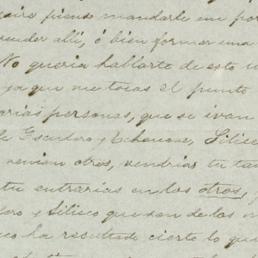 pienso mandarle un por
ender alli, ó bien formar una
No queria hablarte de esto
ya que me tocas el punto
arias personas, que se ivan
Isidoro y Echenove, Silico
venian otros, vendrias tu tam
tu entrarias en los otros,
doro y Silico quedan de los
ha resultado cierto lo que